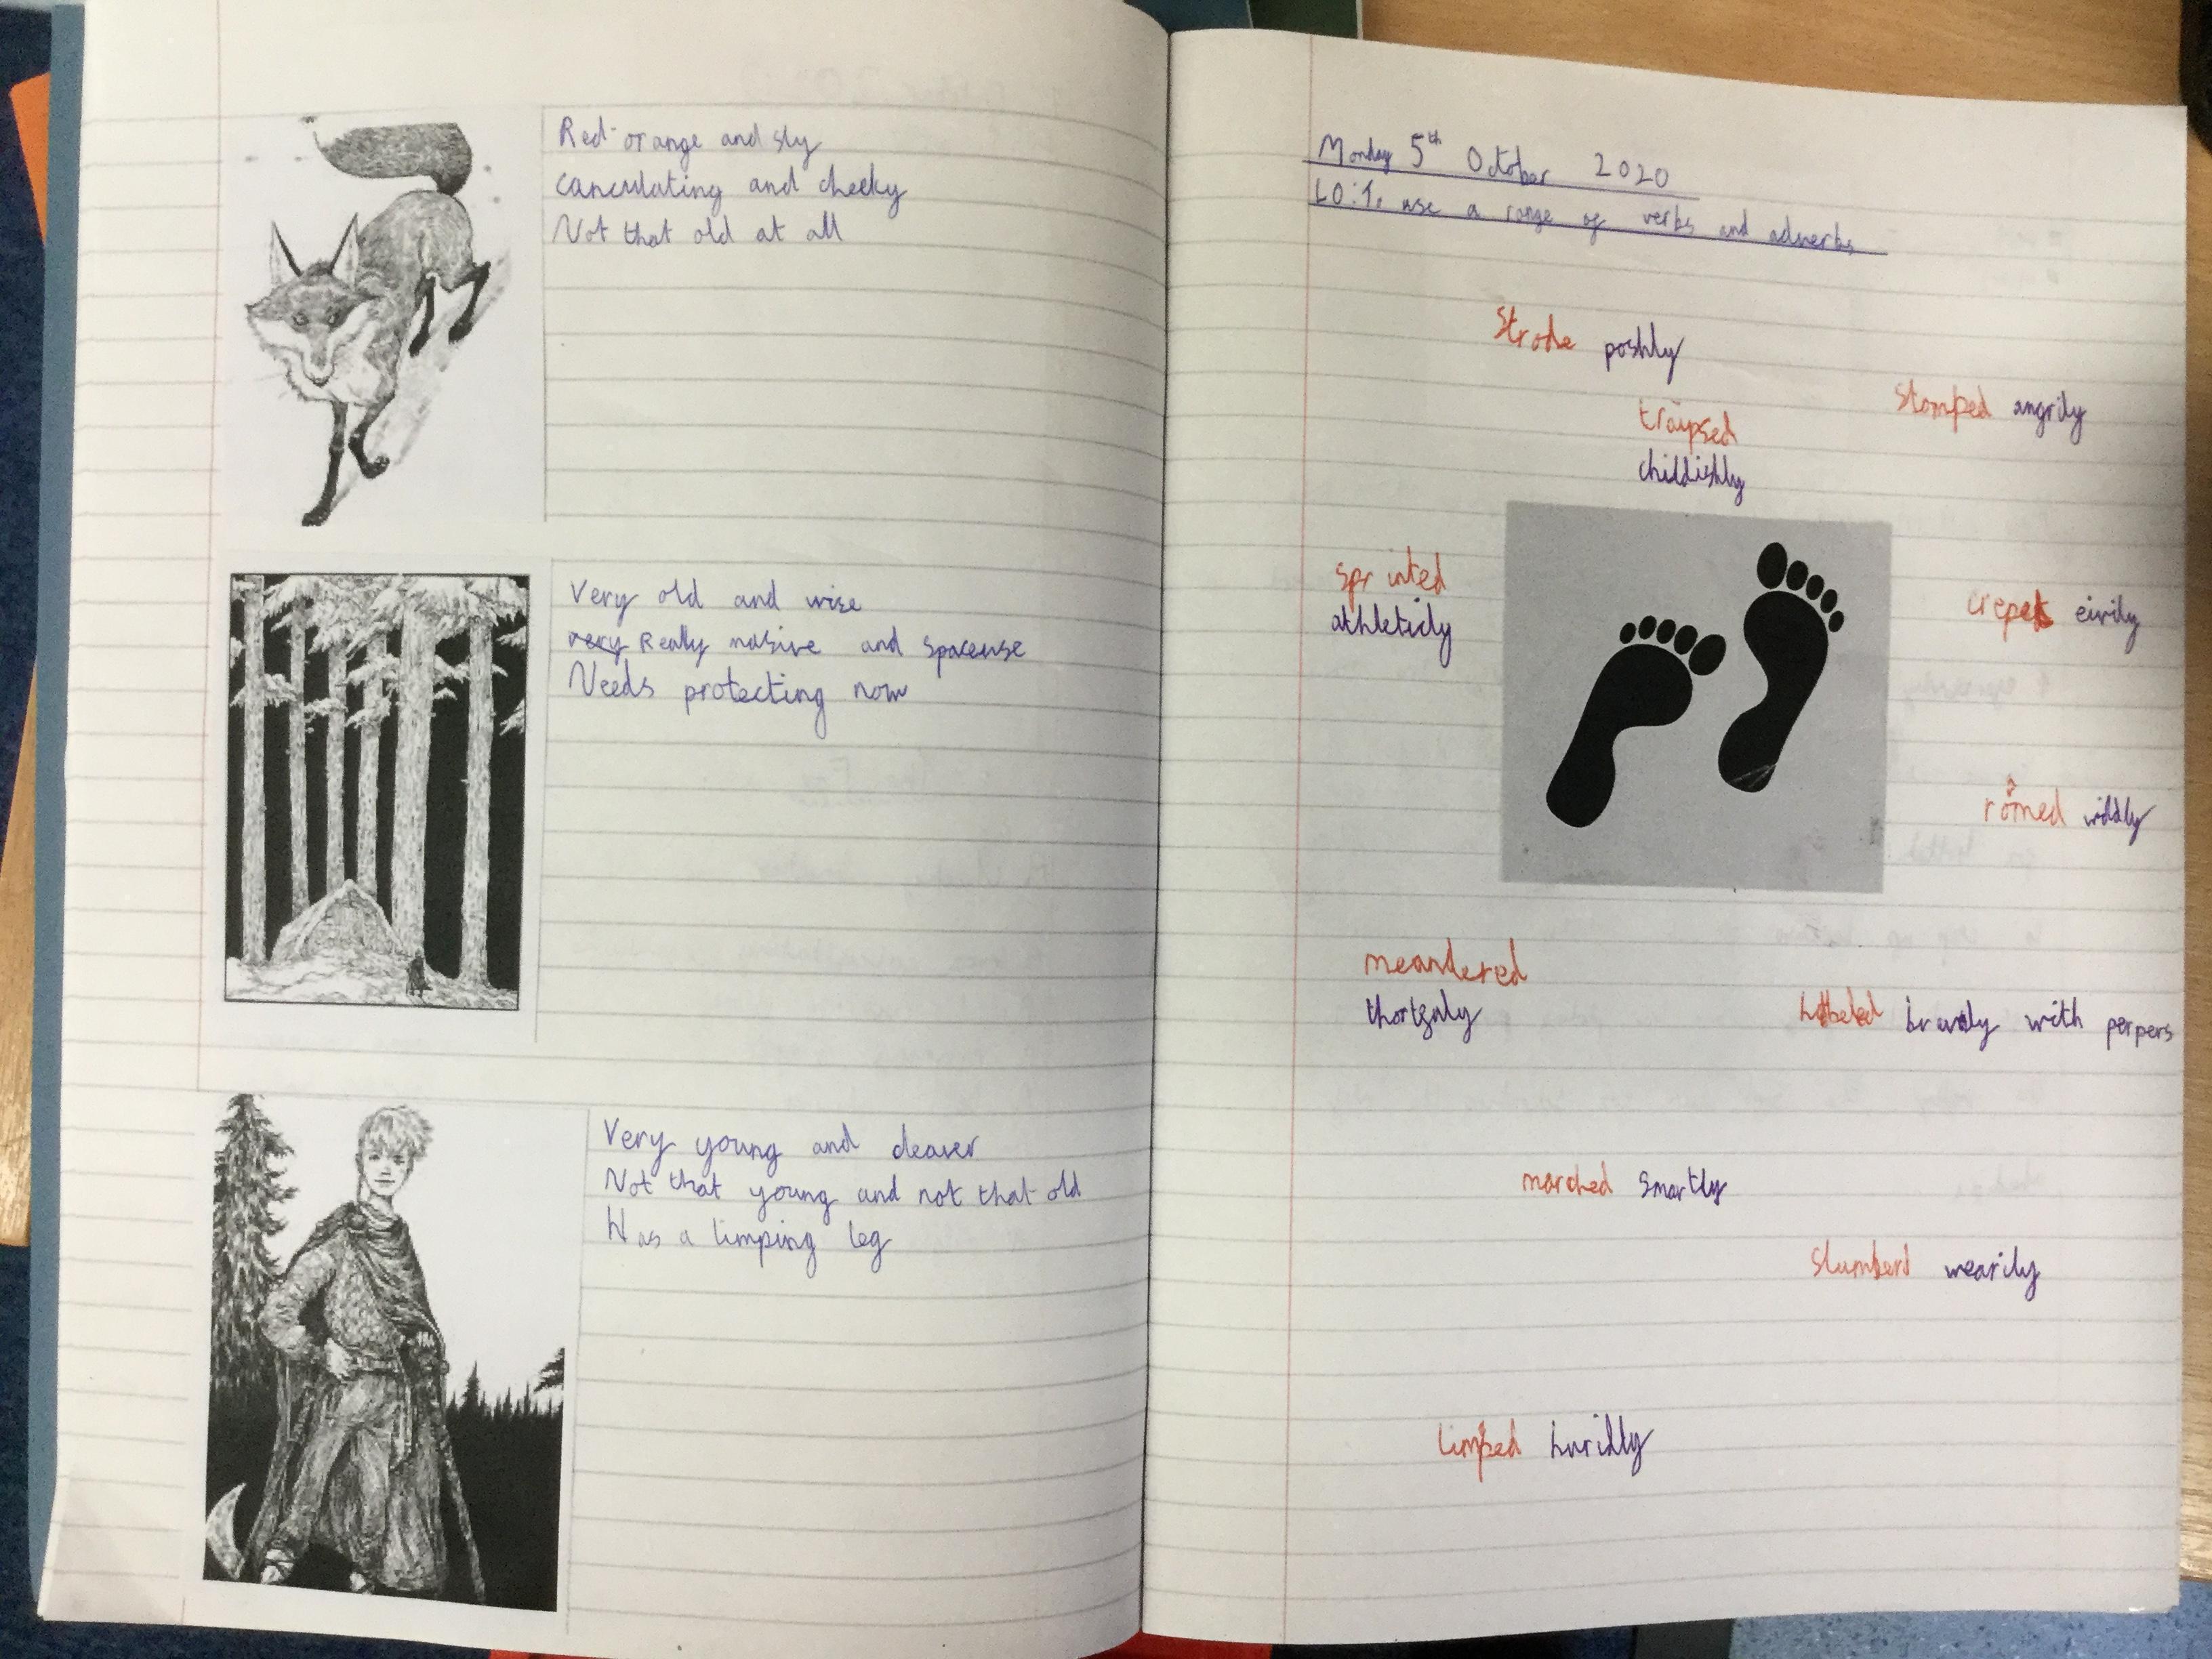 Red-orange and sly
canculating and cheeky
Not that old at all
Very old and wise
very Really masive and spaceuse
Needs protecting now
Very young and cleaver
Not that young and not that old
Has a limping leg
Monday 5th October 2020
LO: To use a range of verbs and adverbs
Strode poshly
Stomped angrily
traipsed
childishly
sprinted
athleticly
crept eirily
romed wildly
meandered
bravly with perpers
marched smartly
Slumberd wearily
limped huridly